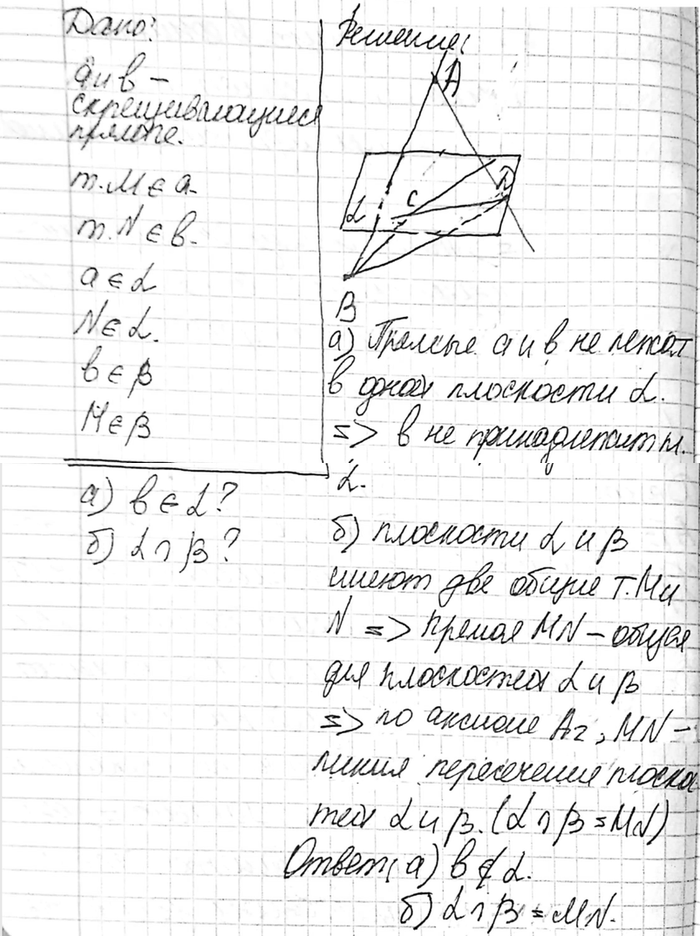 Дано:
a и в —
скрещивающиеся
прямые.
т. M ∈ a.
т. N ∈ в.
a ∈ α
N ∈ α.
в ∈ β
M ∈ β
а) в ∈ α?
б) α ∩ β?
Решение:
A
α
C
D
B
а) Прямые a и в не лежат
в одной плоскости α.
=> в не принадлежит пл.
α.
б) плоскости α и β
имеют две общие т. M и
N => прямая MN – общая
для плоскостей α и β
=> по аксиоме A₂, MN –
линия пересечение плоско
тей α и β. (α ∩ β = MN)
Ответ: а) в ∉ α.
б) α ∩ β = MN.